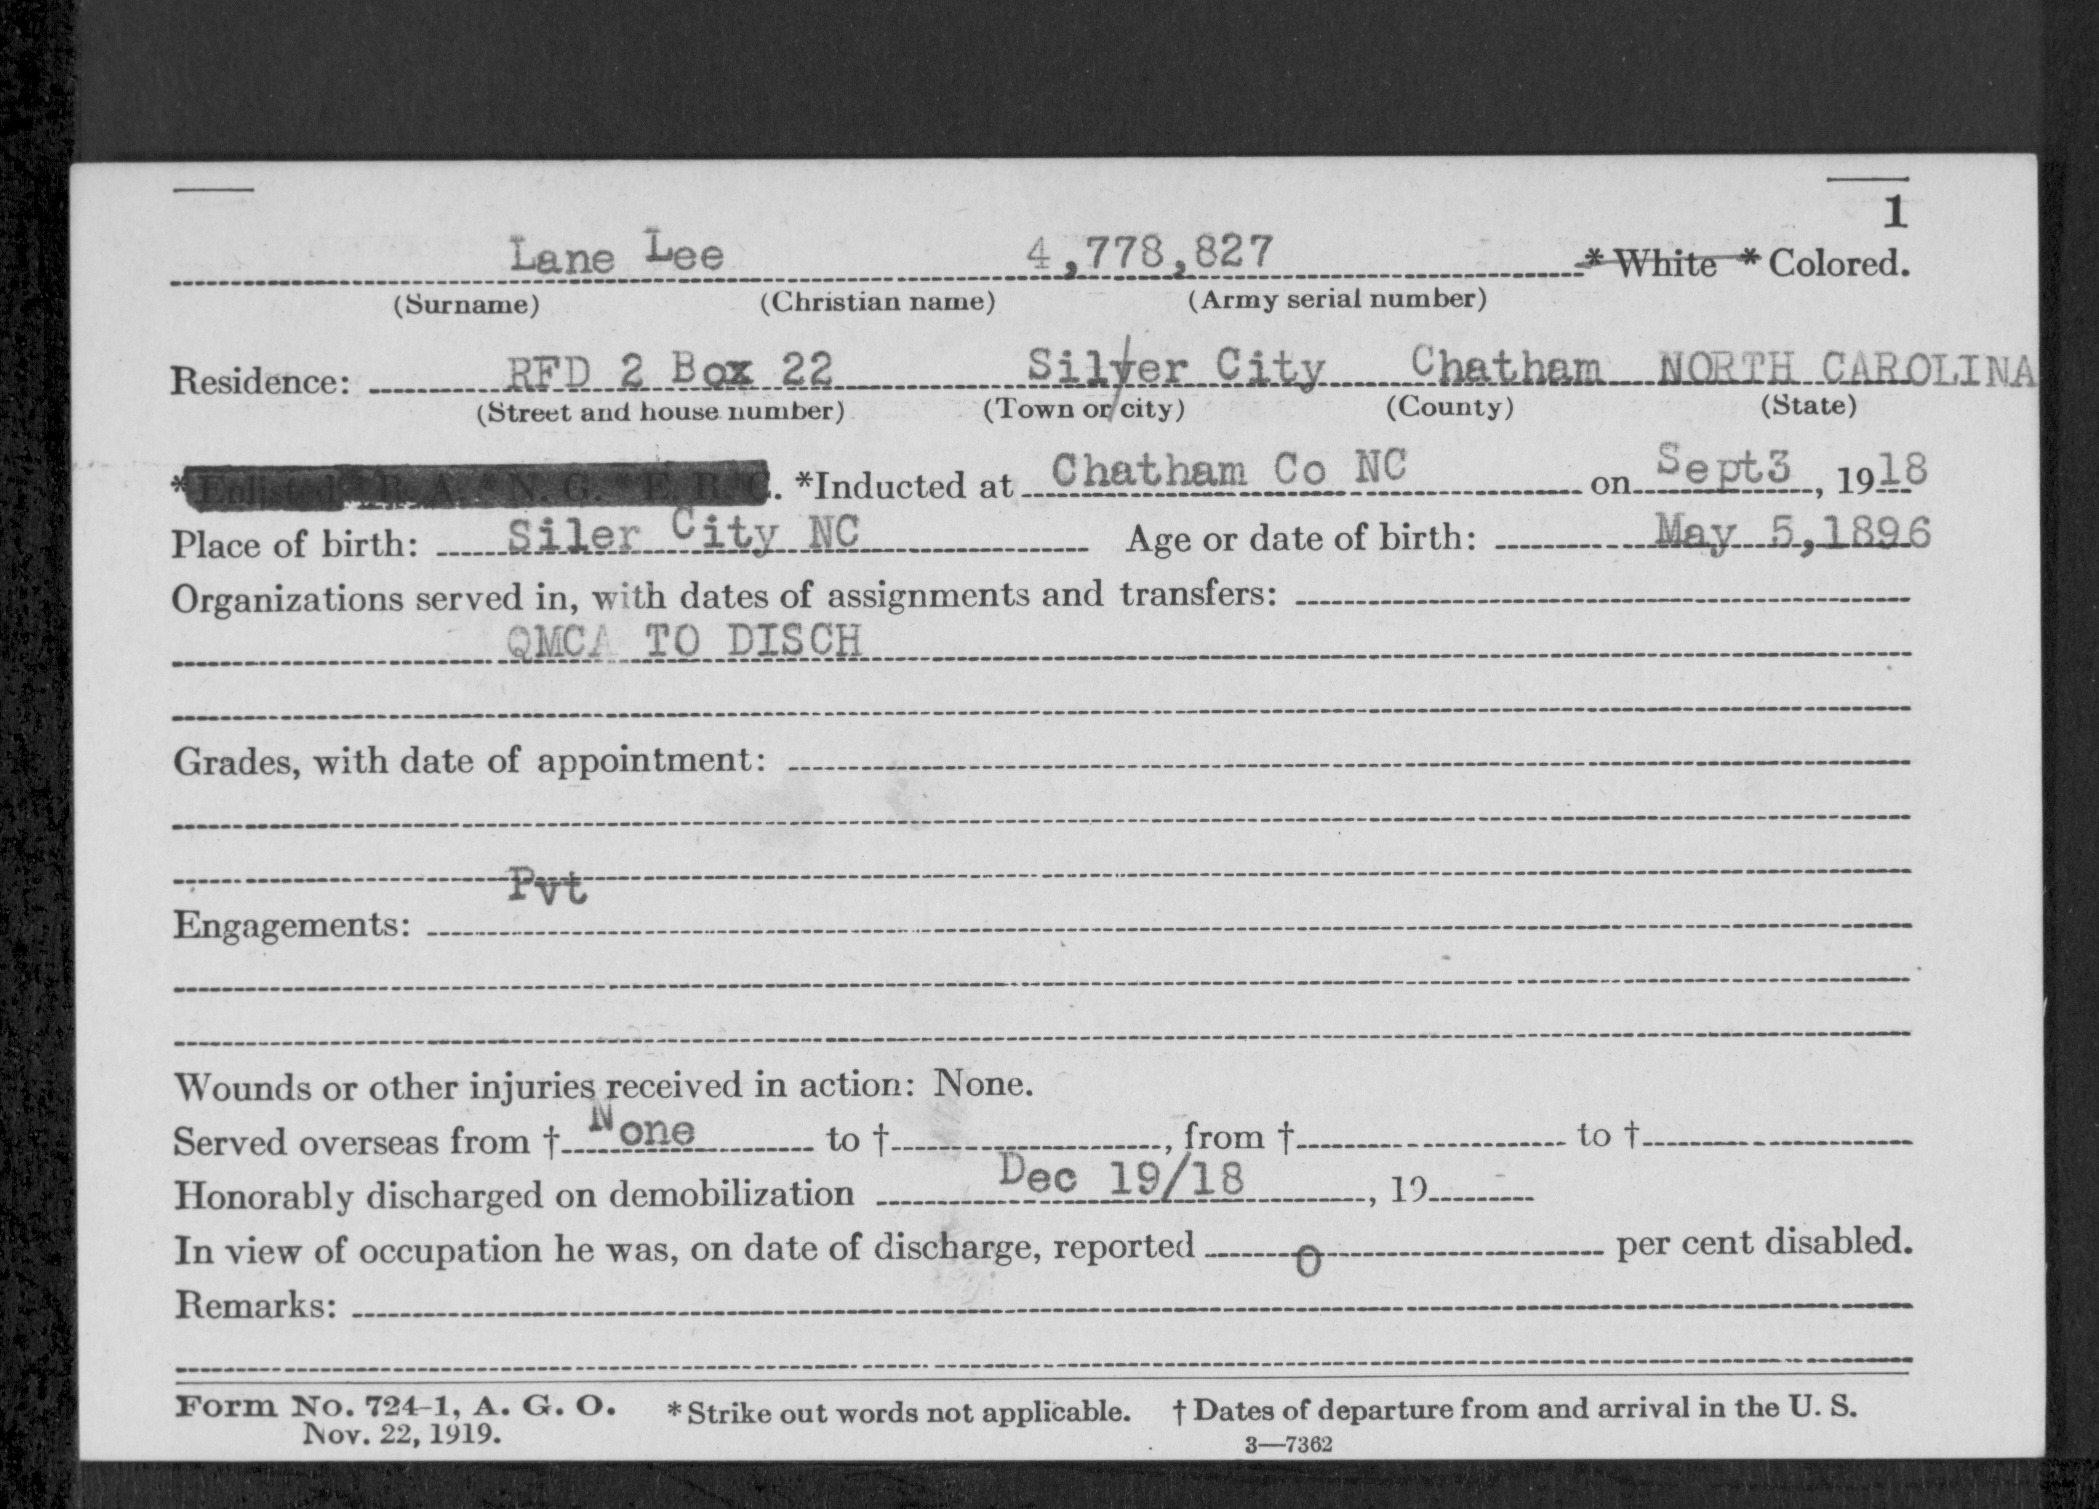 1
Lane Lee 4,778,827 * White * Colored.
(Surname) (Christian name) (Army serial number)
Residence: RFD 2 Box 22 Silver City Chatham NORTH CAROLINA
(Street and house number) (Town or city) (County) (State)
* Enlisted * R. A. * N. G. * E. R. C. *Inducted at Chatham Co NC on Sept3, 1918
Place of birth: Siler City NC Age or date of birth: May 5,1896
Organizations served in, with dates of assignments and transfers:
QMCA TO DISCH
Grades, with date of appointment:
Pvt
Engagements:
Wounds or other injuries received in action: None.
Served overseas from † None to †, from † to †
Honorably discharged on demobilization Dec 19/18, 19
In view of occupation he was, on date of discharge, reported 0 per cent disabled.
Remarks:
Form No. 724-1, A. G. O. * Strike out words not applicable. † Dates of departure from and arrival in the U. S.
Nov. 22, 1919. 3—7362